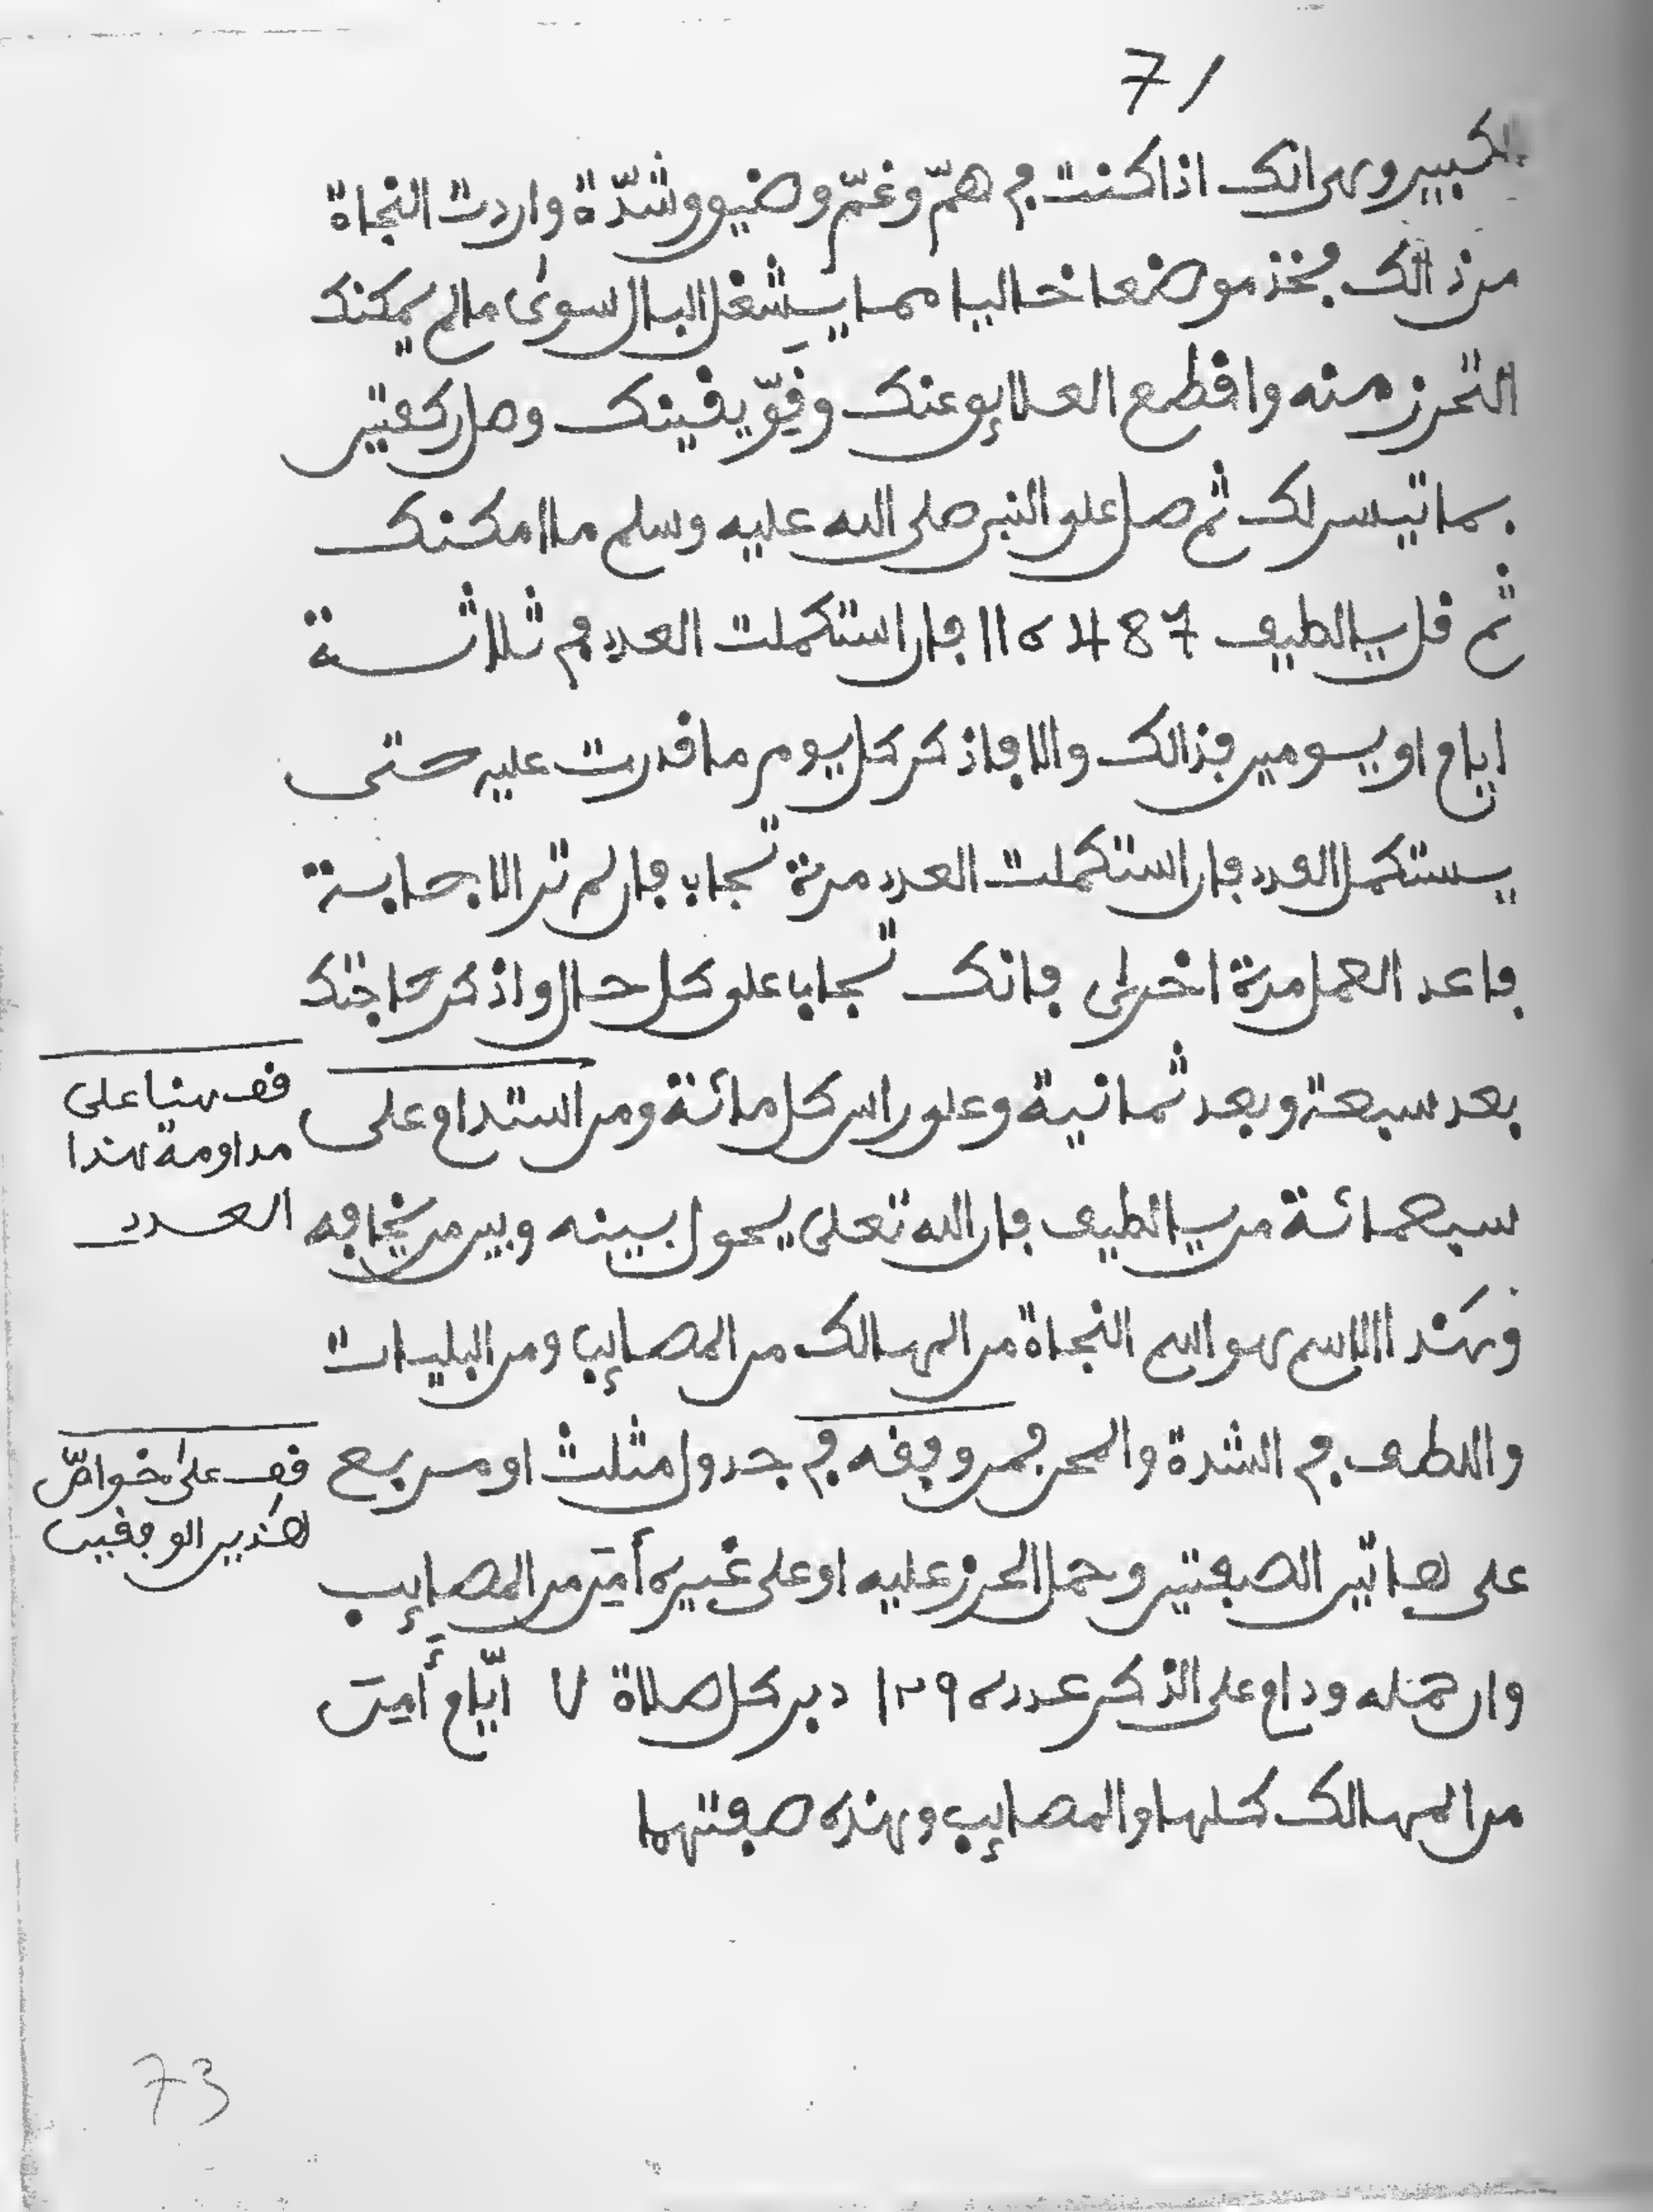 71
الكبير وهى انك اذا كنت في همّ وغمّ وضيق وشدّة واردت النجاة
من ذالك فخذ موضعا خاليا مما يشغل البال سوى ما لم يمكنك
التحرز منه واقطع العلايق عنك وقوّ يقينك وصل ركعتين
بما تيسر لك ثم صل على النبى صلى الله عليه وسلم ما امكنك
ثم قل يا لطيف فان استكملت العدد في ثلاثة
ايام او يومين فذالك والا فاذكر كل يوم ما قدرت عليه حتى
يستكمل العدد فان استكملت العدد مرة تجاب فان لم تر الاجابة
فاعد العمل مرة اخرى فانك تجاب على كل حال واذكر حاجتك
بعد سبعة وبعد ثمانية وعلى راس كل مائة ومن استدام على
قف هنا على
مداومة هذا
العدد
سبعمائة من يا لطيف فان الله تعلى يحول بينه وبين من يخافه
وهذا الاسم هو اسم النجاة من المهالك من المصايب ومن البليات
واللطف في الشدة والمحن فمن وفقه في جدول مثلث او مربع
قف على خواصّ
هذين الوفقين
على هاتين الصفتين وحمل الحرز عليه او على غيره أمن من المصايب
وان حمله ودام على الذكر عدده ١٢٩ دبر كل صلاة ٧ ايّام أمن
من المهالك كلها والمصايب وهذه صفتهما
73